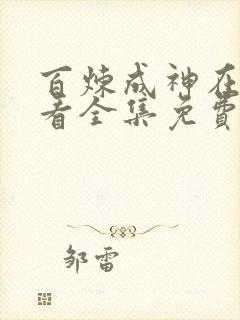 百炼成神在
看全集免费
邹雷